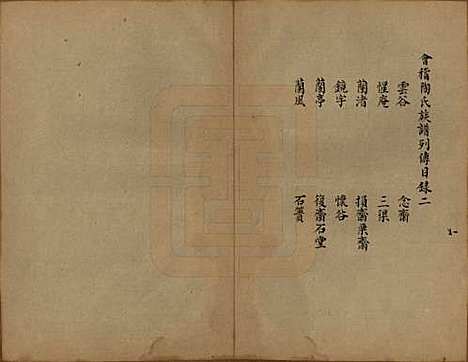 會稽陶氏族譜列傳目錄二
雲谷 念齋
惺庵 三渠
蘭渚 損齋槼齋
鏡宇 懷谷
蘭亭 復齋石堂
蘭風 石簣